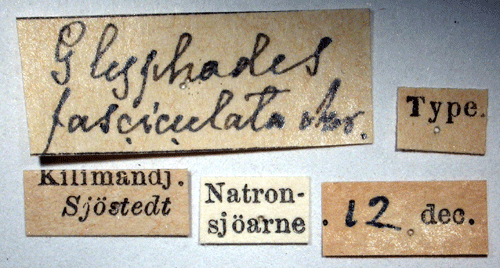 Glyphodes
fasciculata
Type.
Kilimandj.
Sjöstedt
Natron-
sjöarne
. 12 dec.